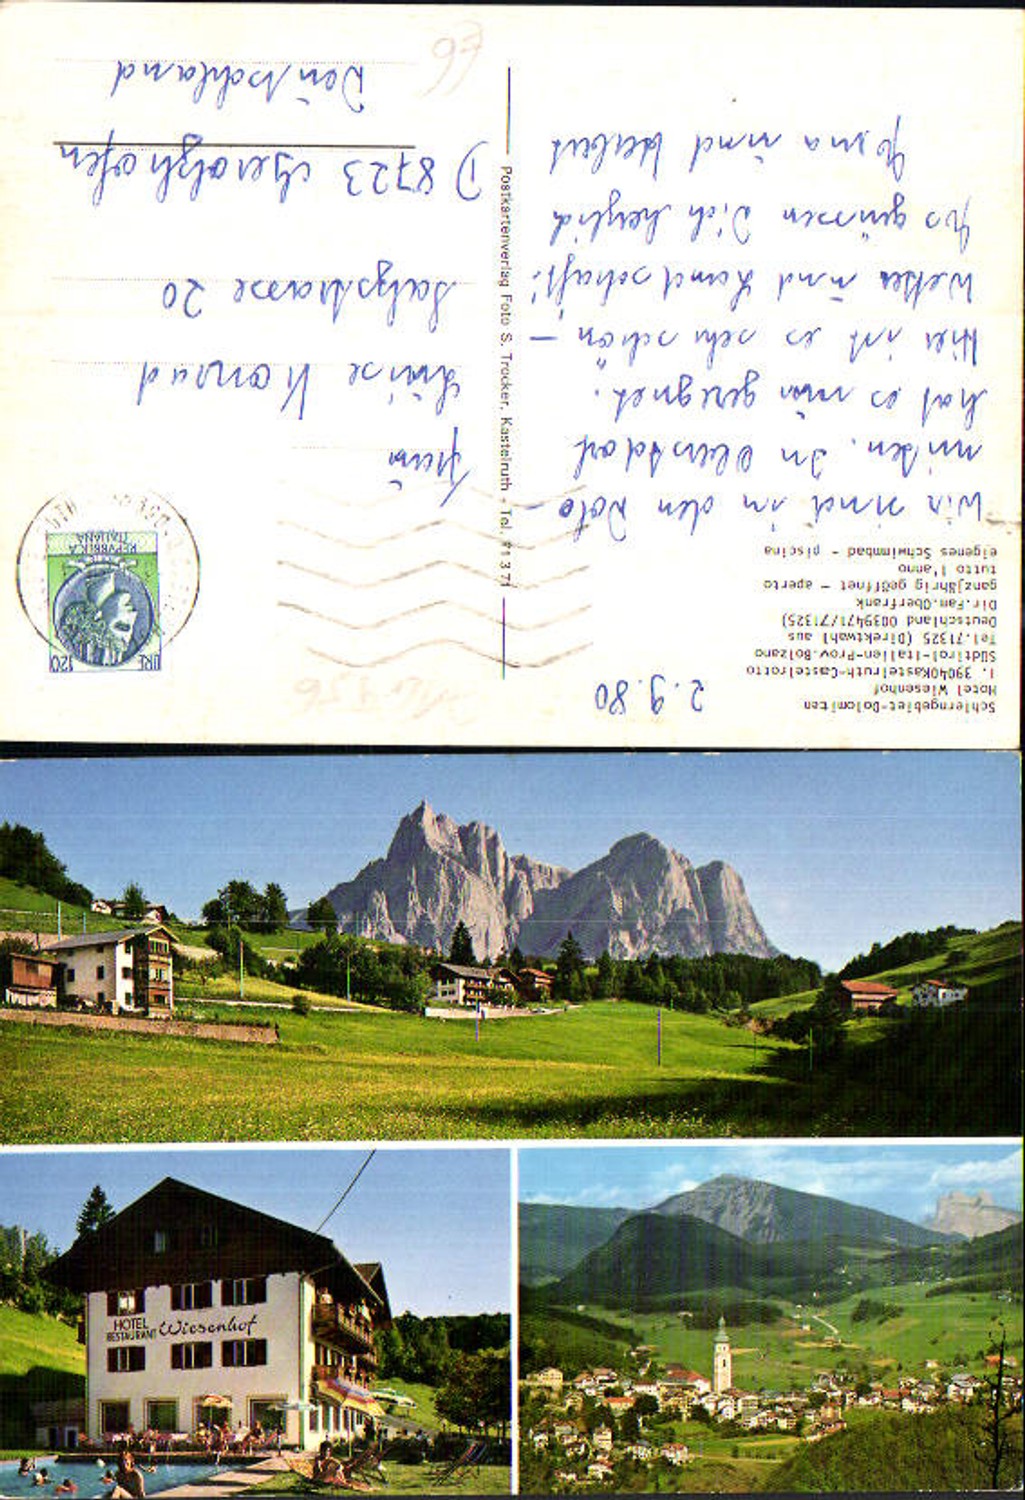 Schlerngebiet-Dolomiten
Hotel Wiesenhof
I. 39040Kastelruth-Castelrotto
Südtirol-Italien-Prov.Bolzano
Tel.71325 (Direktwahl aus
Deutschland 0039471/71325)
Dir.Fam.Oberfrank
ganzjährig geöffnet - aperto
tutto l'anno
eigenes Schwimbad - piscina
2.9.80
Wir sind in den Dolo-
miten. In Oberstdorf
hat es nur geregnet.
Hier ist es sehr schön -
Wetter und Landschaft!
Es grüssen Dich herzlich
und Herbert
Postkartenverlag Foto S. Trocker, Kastelruth - Tel. 71371
LIRE 120
REPVBBLICA
ITALIANA
Frau
Luise Konrad
Salzstrasse 20
D 8723 Gerolzhofen
Deutschland
HOTEL
RESTAURANT Wiesenhof